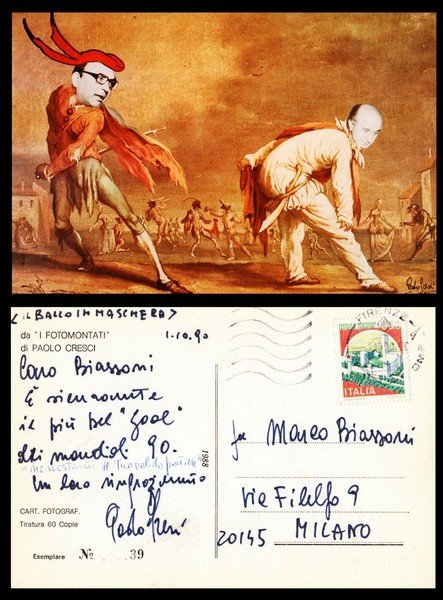 Paolo Cresci
< IL BALLO IN MASCHERA >
da "I FOTOMONTATI"
di PAOLO CRESCI
1-10.90
Caro Biassoni
È sicuramente
il più bel "goal"
dei mondiali 90.
un caro ringraziamento
Paolo Cresci
1988
CART. FOTOGRAF.
Tiratura 60 Copie
Esemplare Nº 39
FIRENZE
ITALIA
per Marco Biassoni
Via Filelfo 9
20145 MILANO